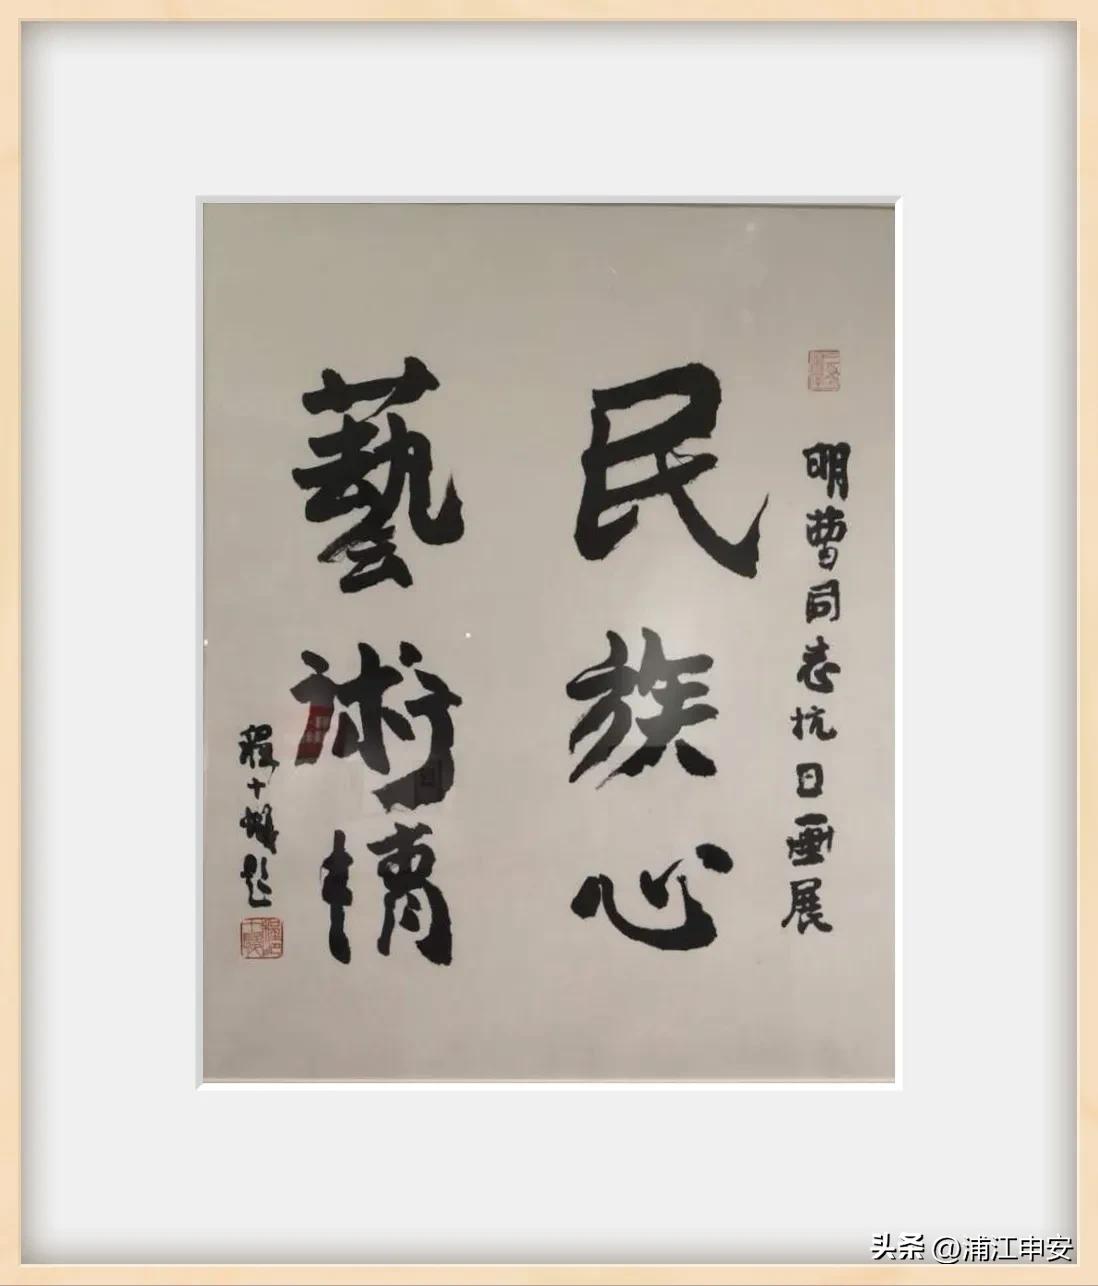 明曹同志抗日画展
民族心
藝術情
程十髮题
头条 @浦江申安